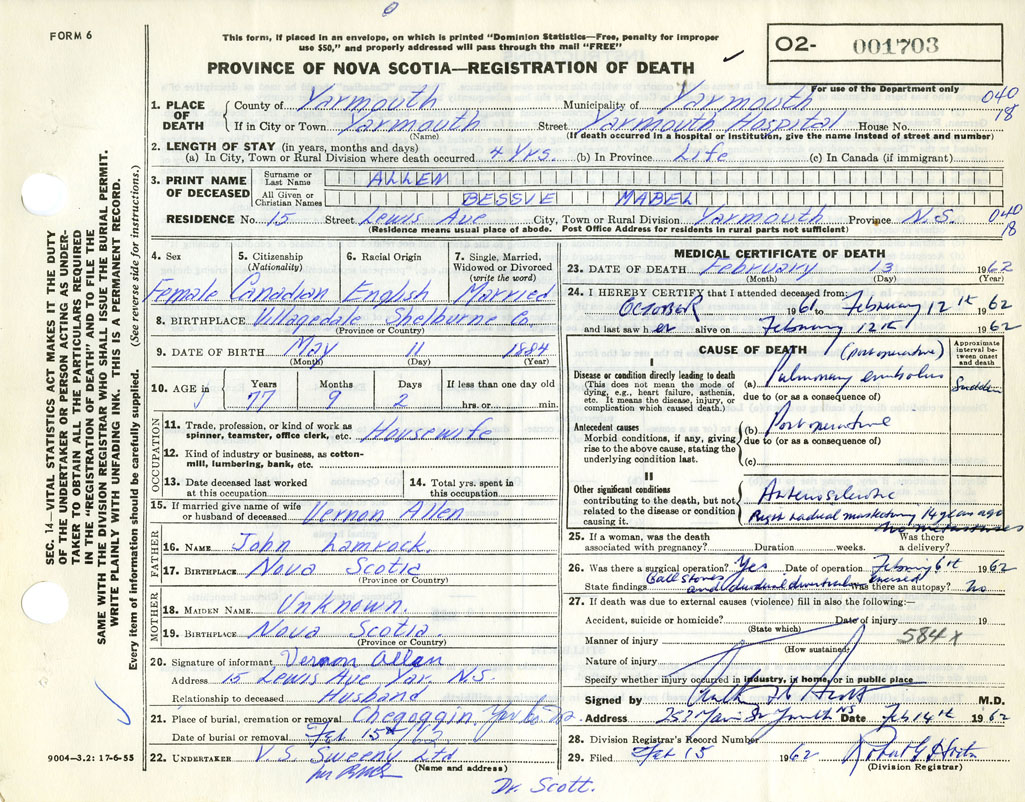 FORM 6
This form, if placed in an envelope, on which is printed "Dominion Statistics—Free, penalty for improper
use $50," and properly addressed will pass through the mail "FREE"
PROVINCE OF NOVA SCOTIA—REGISTRATION OF DEATH
O2- 001703
For use of the Department only
040
18
SEC. 14—VITAL STATISTICS ACT MAKES IT THE DUTY
OF THE UNDERTAKER OR PERSON ACTING AS UNDER-
TAKER TO OBTAIN ALL THE PARTICULARS REQUIRED
IN THE "REGISTRATION OF DEATH" AND TO FILE THE
SAME WITH THE DIVISION REGISTRAR WHO SHALL ISSUE THE BURIAL PERMIT.
WRITE PLAINLY WITH UNFADING INK. THIS IS A PERMANENT RECORD.
Every item of information should be carefully supplied. (See reverse side for instructions.)
1. PLACE OF DEATH County of Yarmouth Municipality of Yarmouth
If in City or Town Yarmouth Street Yarmouth Hospital House No.
(Name) (If death occurred in a hospital or institution, give the name instead of street and number)
2. LENGTH OF STAY (in years, months and days)
(a) In City, Town or Rural Division where death occurred 4 Yrs. (b) In Province Life (c) In Canada (if immigrant)
3. PRINT NAME OF DECEASED Surname or Last Name ALLEN
All Given or Christian Names BESSIE MABEL
RESIDENCE No. 15 Street Lewis Ave City, Town or Rural Division Yarmouth Province N.S. 040
18
(Residence means usual place of abode. Post Office Address for residents in rural parts not sufficient)
4. Sex 5. Citizenship (Nationality) 6. Racial Origin 7. Single, Married, Widowed or Divorced (write the word)
Female Canadian English Married
8. BIRTHPLACE Villagedale Shelburne Co.
(Province or Country)
9. DATE OF BIRTH May 11 1884
(Month) (Day) (Year)
10. AGE in Years Months Days If less than one day old
77 9 2 hrs. or min.
OCCUPATION
11. Trade, profession, or kind of work as spinner, teamster, office clerk, etc. Housewife
12. Kind of industry or business, as cotton-mill, lumbering, bank, etc.
13. Date deceased last worked at this occupation 14. Total yrs. spent in this occupation
15. If married give name of wife or husband of deceased Vernon Allen
FATHER
16. NAME John Lamrock.
17. BIRTHPLACE Nova Scotia
(Province or Country)
MOTHER
18. MAIDEN NAME Unknown.
19. BIRTHPLACE Nova Scotia.
(Province or Country)
20. Signature of informant Vernon Allen
Address 15 Lewis Ave Yar. N.S.
Relationship to deceased Husband
21. Place of burial, cremation or removal Chegoggin, Yar Co
Date of burial or removal Feb 15th
22. UNDERTAKER V.S. Sweeny Ltd
(Name and address)
9004—3.2: 17-6-55
MEDICAL CERTIFICATE OF DEATH
23. DATE OF DEATH February 13 1962
(Month) (Day) (Year)
24. I HEREBY CERTIFY that I attended deceased from:
October 1961 to February 12th 1962
and last saw her alive on February 12th 1962
CAUSE OF DEATH (post operative)
Approximate interval between onset and death
I
Disease or condition directly leading to death
(This does not mean the mode of dying, e.g., heart failure, asthenia, etc. It means the disease, injury, or complication which caused death.)
(a) Pulmonary embolus Sudden
due to (or as a consequence of)
Antecedent causes
Morbid conditions, if any, giving rise to the above cause, stating the underlying condition last.
(b) Post operative
due to (or as a consequence of)
(c)
II
Other significant conditions
contributing to the death, but not related to the disease or condition causing it.
Right radical mastectomy 14 years ago
no metastases
25. If a woman, was the death associated with pregnancy? Duration weeks. Was there a delivery?
26. Was there a surgical operation? Yes Date of operation February 6th 1962
State findings Gall stones and duodenal Was there an autopsy? No
27. If death was due to external causes (violence) fill in also the following:—
Accident, suicide or homicide? Date of injury 19
(State which)
Manner of injury 584 x
(How sustained)
Nature of injury
Specify whether injury occurred in industry, in home, or in public place
Signed by M.D.
Address Date Feb 14th 1962
28. Division Registrar's Record Number
29. Filed Feb 15 1962
(Division Registrar)
Dr. Scott.